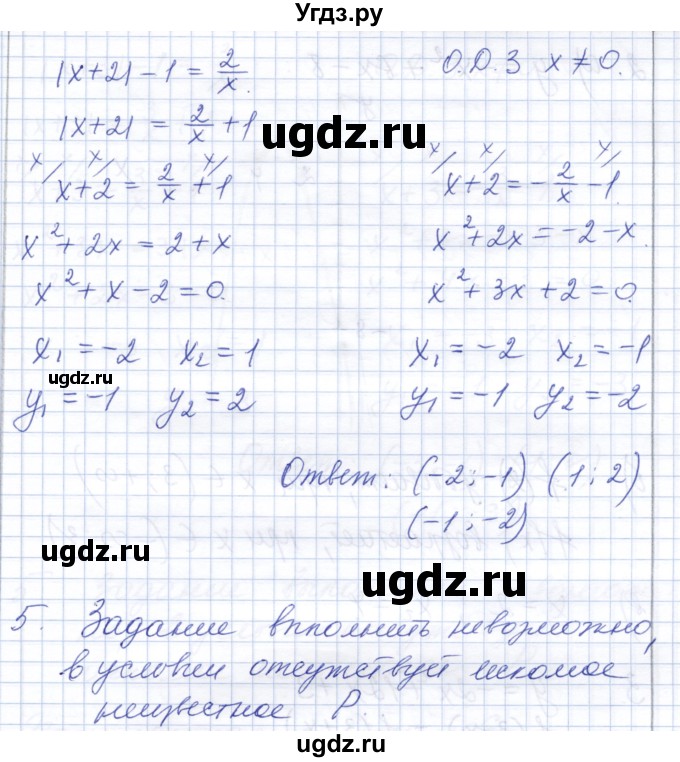 Угдз.ру
|x+2| - 1 = 2/x. О.Д.З x ≠ 0.
|x+2| = 2/x + 1
ugdz.ru
x/ x/ x/ x/ x/ x/
x+2 = 2/x + 1 x+2 = -2/x - 1.
x² + 2x = 2 + x x² + 2x = -2 - x.
x² + x - 2 = 0. x² + 3x + 2 = 0.
x₁ = -2 x₂ = 1 x₁ = -2 x₂ = -1
ugdz.ru
y₁ = -1 y₂ = 2 y₁ = -1 y₂ = -2
Ответ: (-2; -1) (1; 2)
(-1; -2)
ugdz.ru
ugdz.ru
5. Задание вполнить невозможно,
в условии отсутствует искомое
неизвестное P
ugdz.ru